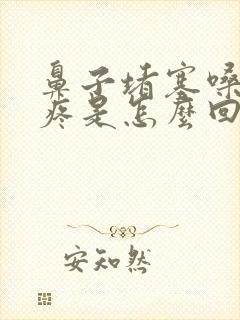 鼻子堵塞嗓
疼是怎麼回
安知然